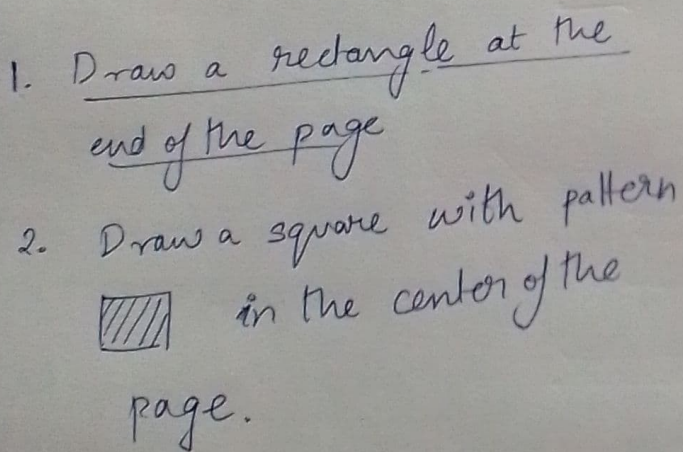 1. Draw a rectangle at the
end of the page
2. Draw a square with pattern
in the center of the
page.